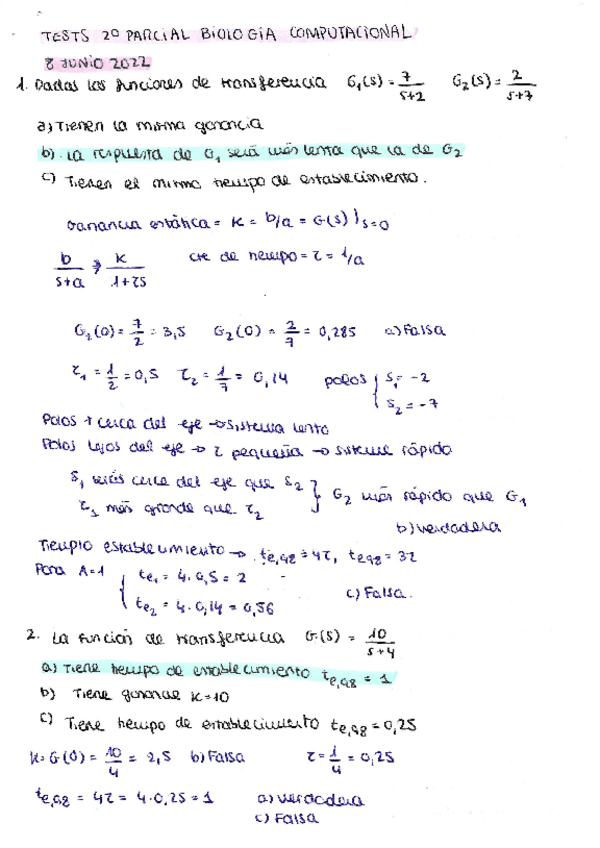 TESTS 2º PARCIAL BIOLOGÍA COMPUTACIONAL
8 JUNIO 2022
1. Dadas las funciones de transferencia G₁(s) = 7/(s+2) G₂(s) = 2/(s+7)
a) Tienen la misma ganancia
b) La respuesta de G₁ será más lenta que la de G₂
c) Tienen el mismo tiempo de establecimiento.
Ganancia estática = K = b/a = G(s)|s=0
b/(s+a) → K/(1+τs) cte de tiempo = τ = 1/a
G₁(0) = 7/2 = 3,5 G₂(0) = 2/7 = 0,285 a) Falsa
τ₁ = 1/2 = 0,5 τ₂ = 1/7 = 0,14 polos { s₁ = -2
s₂ = -7
Polos + cerca del eje → sistema lento
Polos lejos del eje → τ pequeña → sistema rápido
s₁ más cerca del eje que s₂ } G₂ más rápido que G₁
τ₁ más grande que τ₂
b) verdadera
Tiempo establecimiento → te,98 = 4τ, te,98 = 3τ
Para A=1 { te₁ = 4·0,5 = 2
te₂ = 4·0,14 = 0,56
c) Falsa.
2. La función de transferencia G(s) = 10/(s+4)
a) Tiene tiempo de establecimiento te,98 = 1
b) Tiene ganancia K=10
c) Tiene tiempo de establecimiento te,98 = 0,25
K = G(0) = 10/4 = 2,5 b) Falsa τ = 1/4 = 0,25
te,98 = 4τ = 4·0,25 = 1 a) verdadera
c) Falsa